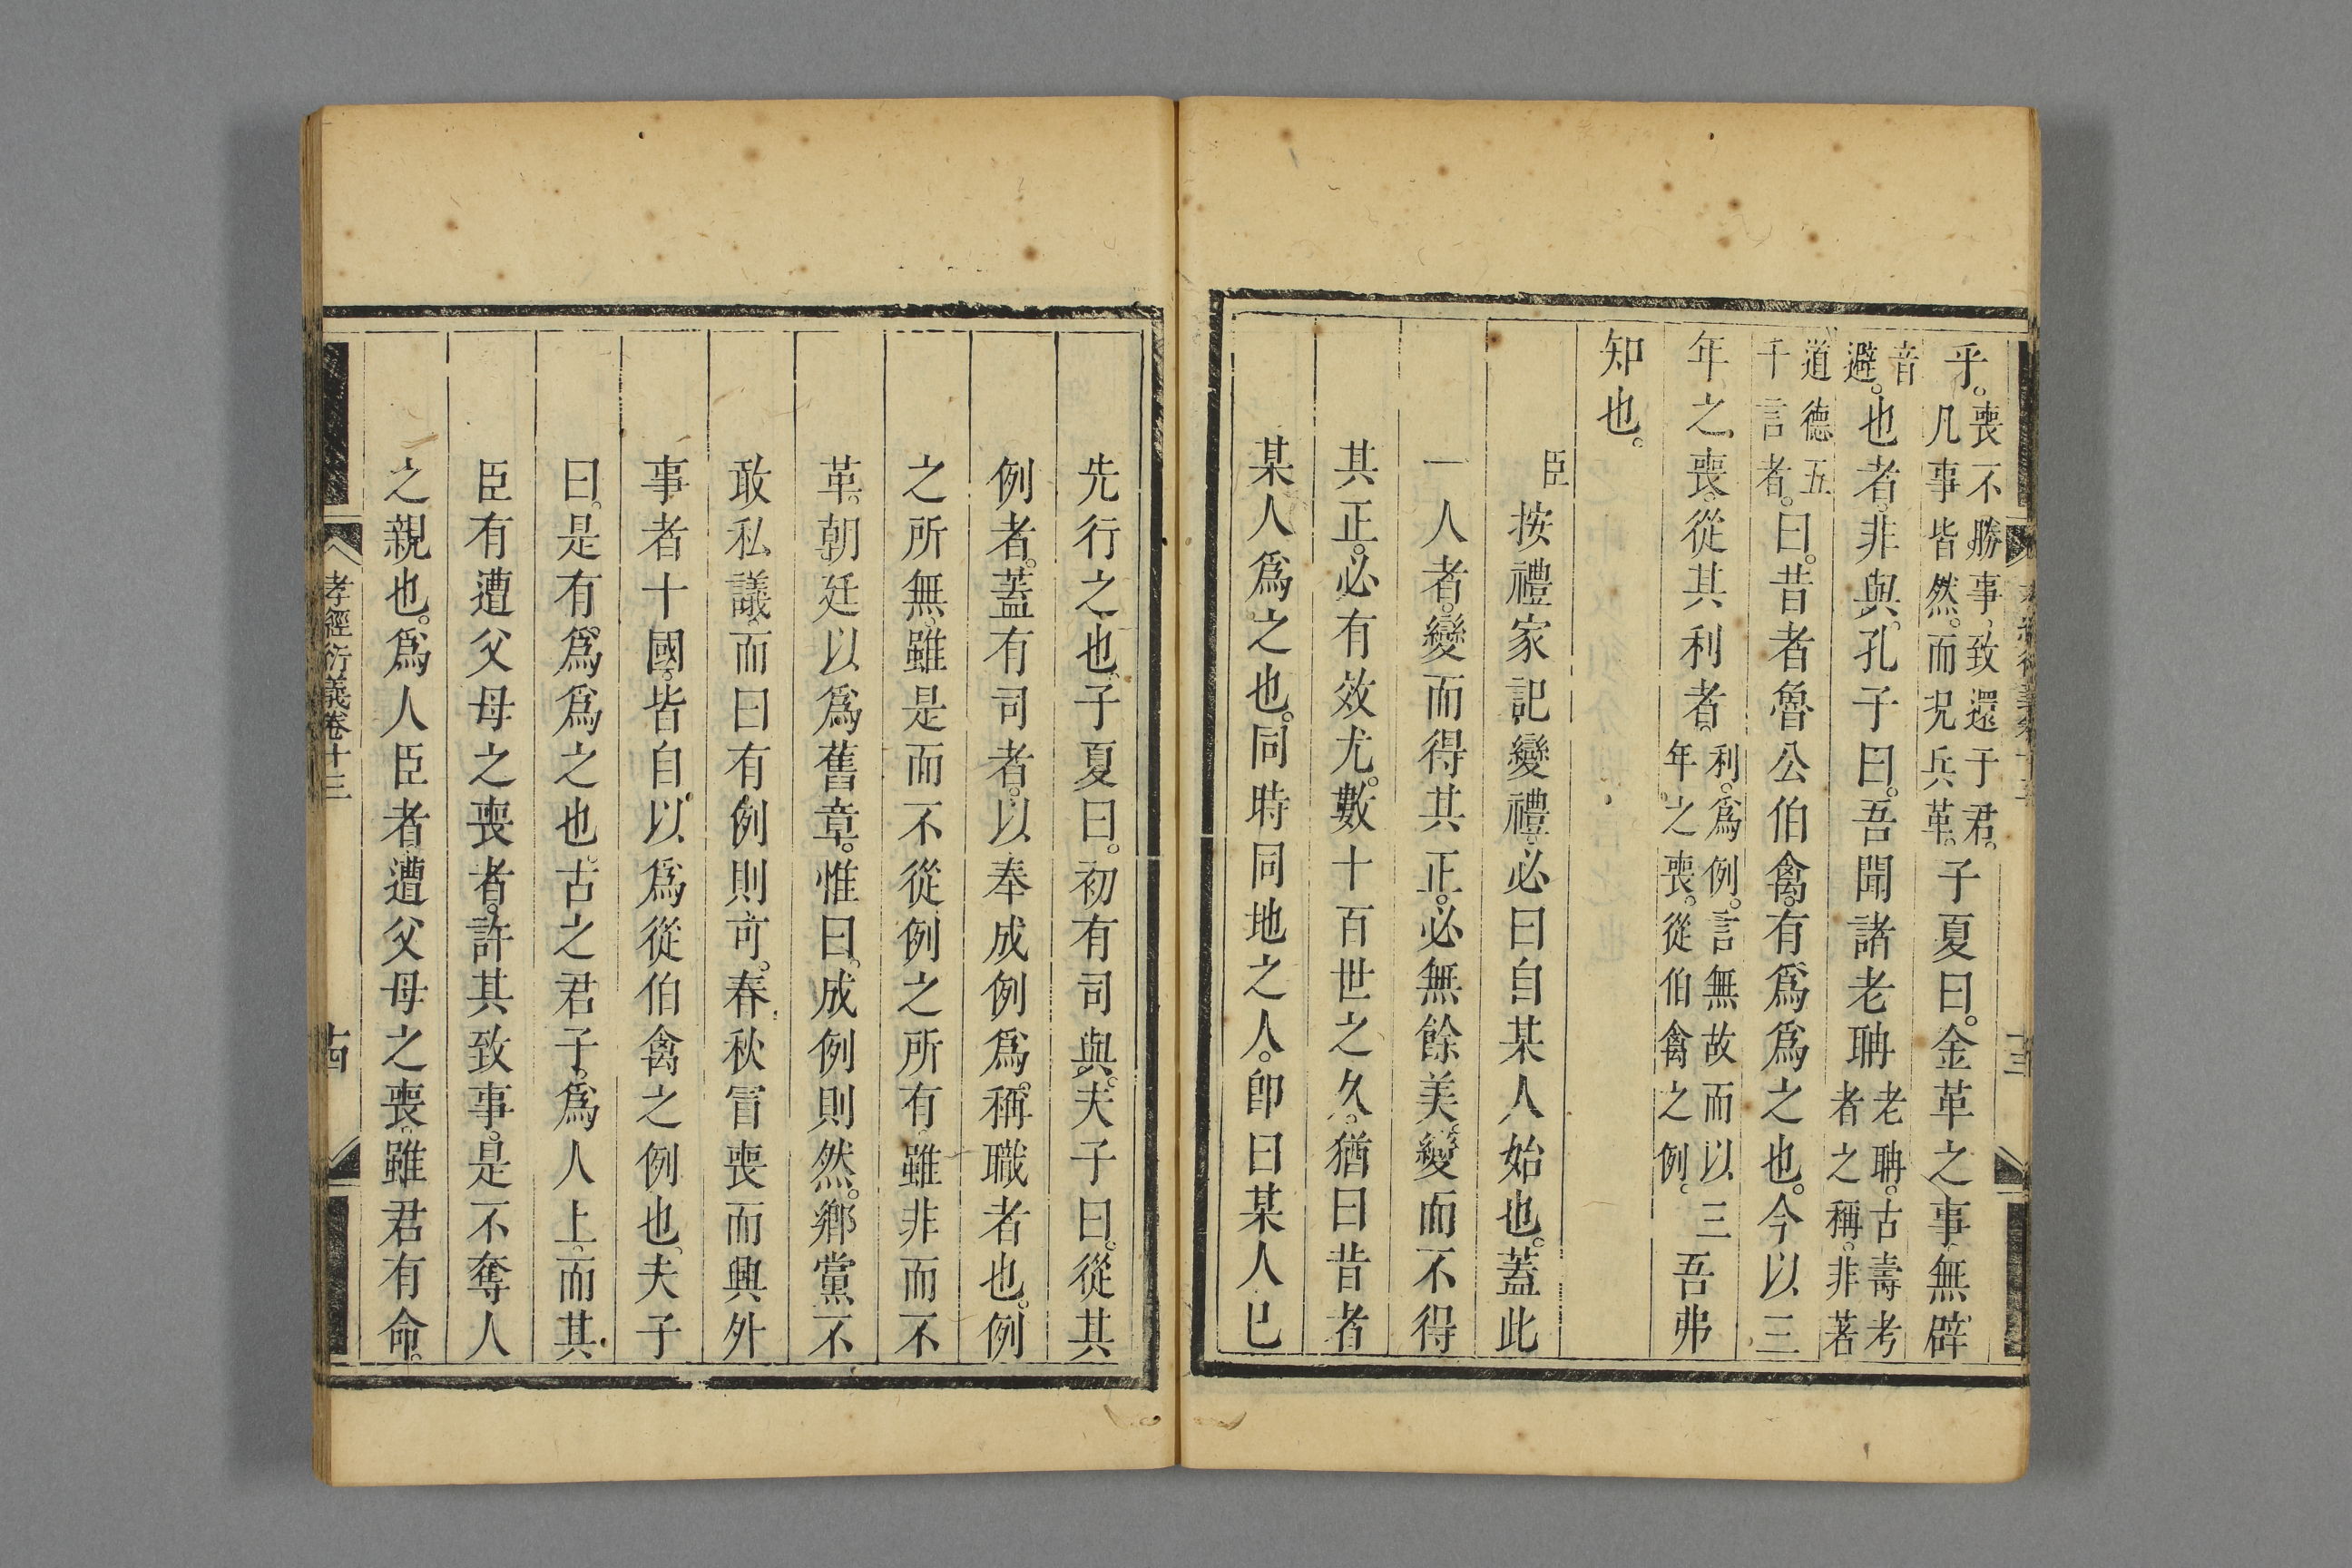 乎。喪不勝事、致還于君。凡事皆然。而况兵革。子夏曰。金革之事無辟
音避。也者。非與。孔子曰。吾聞諸老聃老聃。古壽考者之稱。非著
道德五千言者。曰。昔者魯公伯禽。有爲爲之也。今以三
年之喪。從其利者。利。爲例。言無故而以三年之喪。從伯禽之例。吾弗
知也。
臣按禮家記變禮。必曰自某人始也。蓋此
一人者。變而得其正。必無餘美。變而不得
其正。必有效尤。數十百世之久。猶曰昔者
某人爲之也。同時同地之人。卽曰某人已
十三
先行之也。子夏曰。初有司與。夫子曰。從其
例者。蓋有司者。以奉成例爲。稱職者也。例
之所無。雖是而不從例之所有。雖非而不
革。朝廷以爲舊章。惟曰。成例則然。鄉黨不
敢私議。而曰有例則可。春秋冐喪而興外
事者十國。皆自以爲從伯禽之例也。夫子
曰。是有爲爲之也。古之君子。爲人上。而其
臣有遭父母之喪者。許其致事。是不奪人
之親也。爲人臣者。遭父母之喪。雖君有命。
孝經衍義卷十三
十四